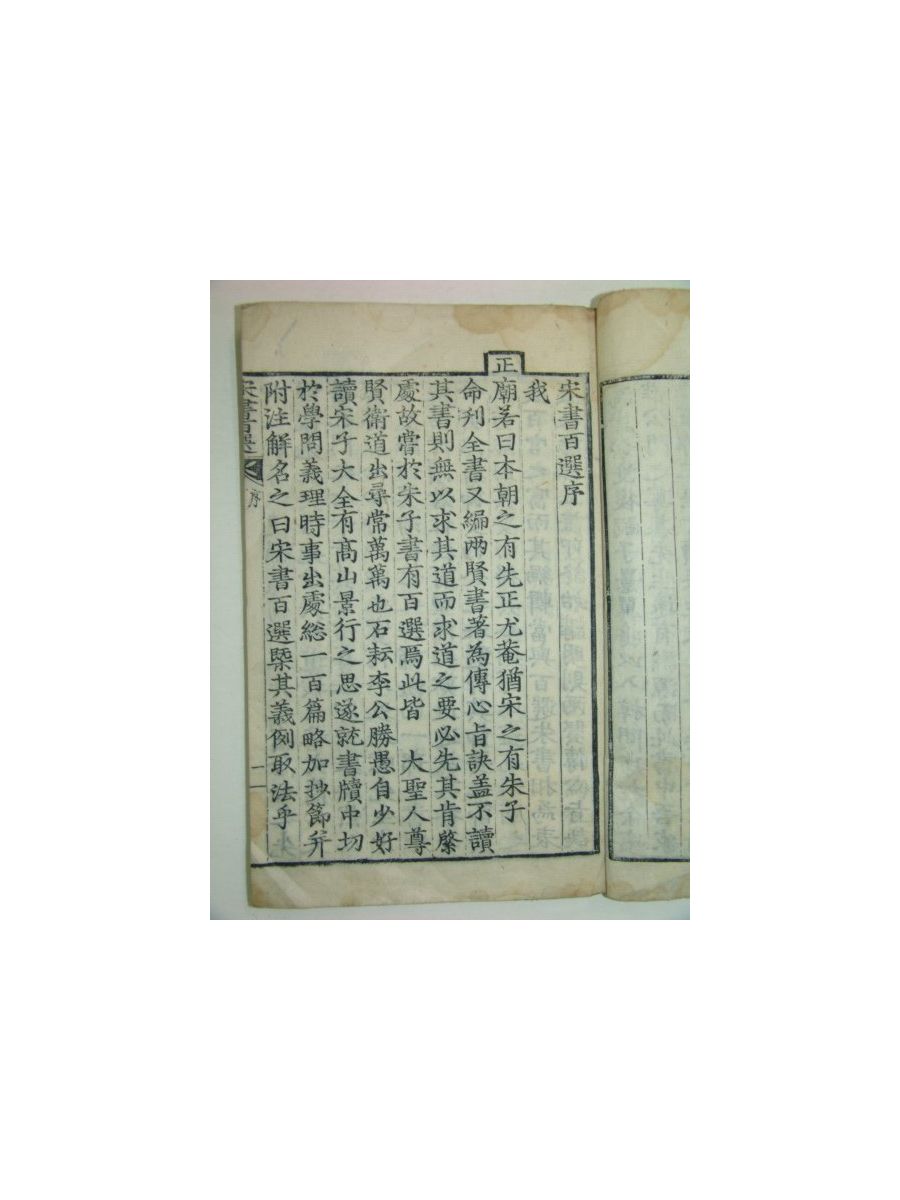 宋書百選序
我
正廟若曰本朝之有先正尤菴猶宋之有朱子
命刊全書又編兩賢書著為傳心旨訣盖不讀
其書則無以求其道而求道之要必先其肯綮
處故嘗於朱子書有百選焉此皆 大聖人尊
賢衛道出尋常萬萬也石耘李公勝愚自少好
讀宋子大全有高山景行之思遂就書牘中切
於學問義理時事出處総一百篇略加抄節弁
附注解名之曰宋書百選槩其義例取法乎朱
宋書百選 序 一